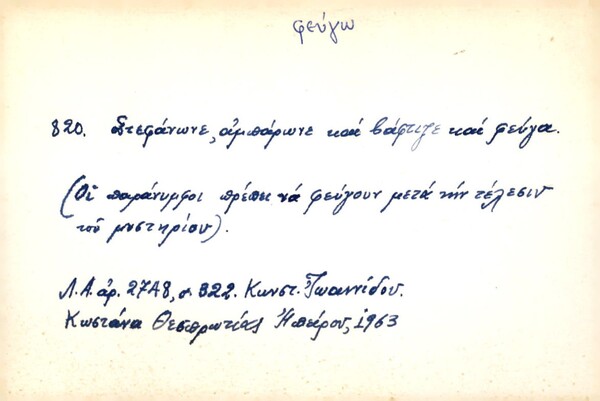 φεύγω
820. Στεφάνωνε, ἀμπάρωνε καὶ βάφτιζε καὶ φεῦγα.
(Οἱ παράνυμφοι πρέπει νά φεύγουν μετά τήν τέλεσιν
τοῦ μυστηρίου).
Λ.Α. ἀρ. 2748, σ. 322. Κωνστ. Ἰωαννίδου.
Κωστάνα Θεσπρωτίας Ἠπείρου, 1963